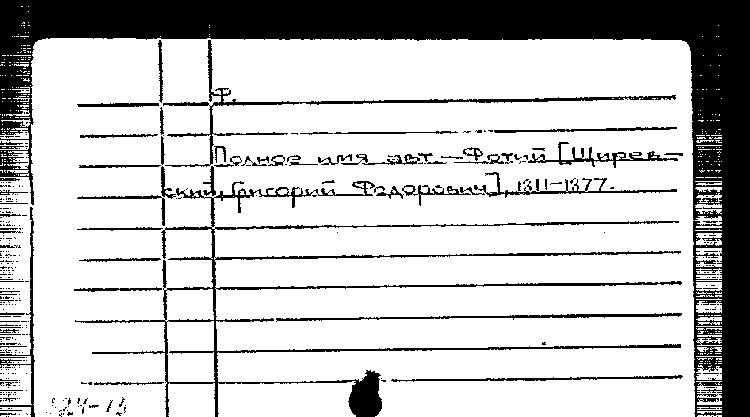 Ф.
Полное имя авт.—Фотий [Щирев-
ский, Григорий Федорович], 1811–1877.
124-13